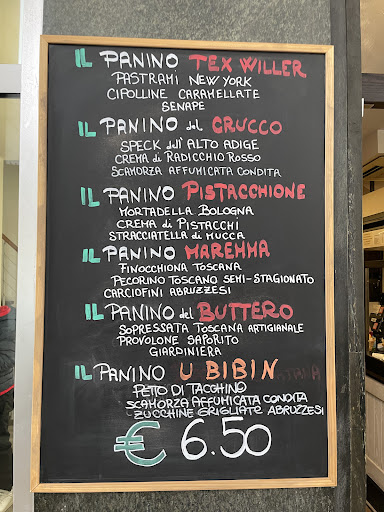 IL PANINO TEX WILLER
PASTRAMI NEW YORK
CIPOLLINE CARAMELLATE
SENAPE
IL PANINO del CRUCCO
SPECK dell' ALTO ADIGE
CREMA di RADICCHIO ROSSO
SCAMORZA AFFUMICATA CONDITA
IL PANINO PISTACCHIONE
MORTADELLA BOLOGNA
CREMA di PISTACCHI
STRACCIATELLA di MUCCA
IL PANINO MAREMMA
FINOCCHIONA TOSCANA
PECORINO TOSCANO SEMI-STAGIONATO
CARCIOFINI ABRUZZESI
IL PANINO del BUTTERO
SOPRESSATA TOSCANA ARTIGIANALE
PROVOLONE SAPORITO
GIARDINIERA
IL PANINO U BIBIN
PETTO DI TACCHINO
SCAMORZA AFFUMICATA CONDITA
ZUCCHINE GRIGLIATE ABRUZZESI
€ 6.50